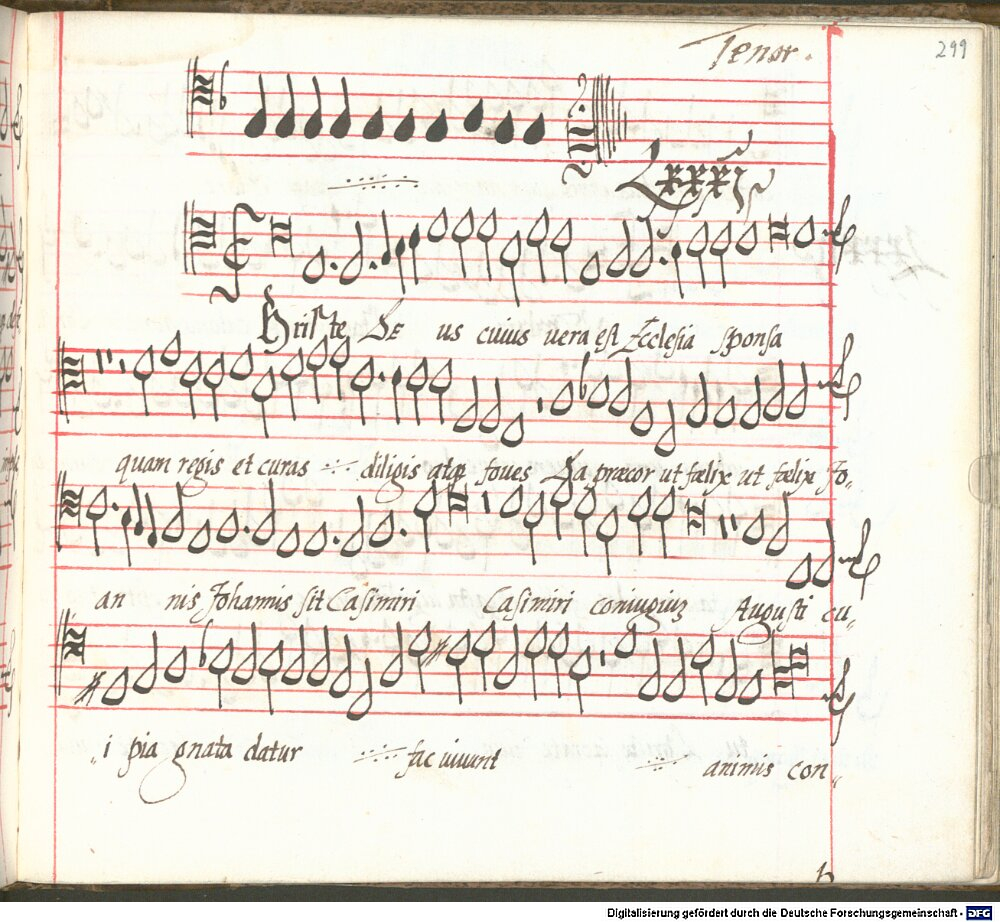 Tenor.
299
Lxxxj
Christe De us cuius vera est Ecclesia sponsa
quam regis et curas diligis atq foves Da præcor ut fælix ut fælix Jo,,
an nis Johannis sit Casimiri Casimiri coniugiuz Augusti cu,,
,,i pia gnata datur fac vivant animis con,,
Digitalisierung gefördert durch die Deutsche Forschungsgemeinschaft - DFG